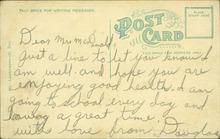 THIS SPACE FOR WRITING MESSAGES.
POST CARD
Dear Mr. Mc
Just a line to let you know I
am well and hope you are
enjoying good health. I am
going to school every day and
having a great time.
with love from